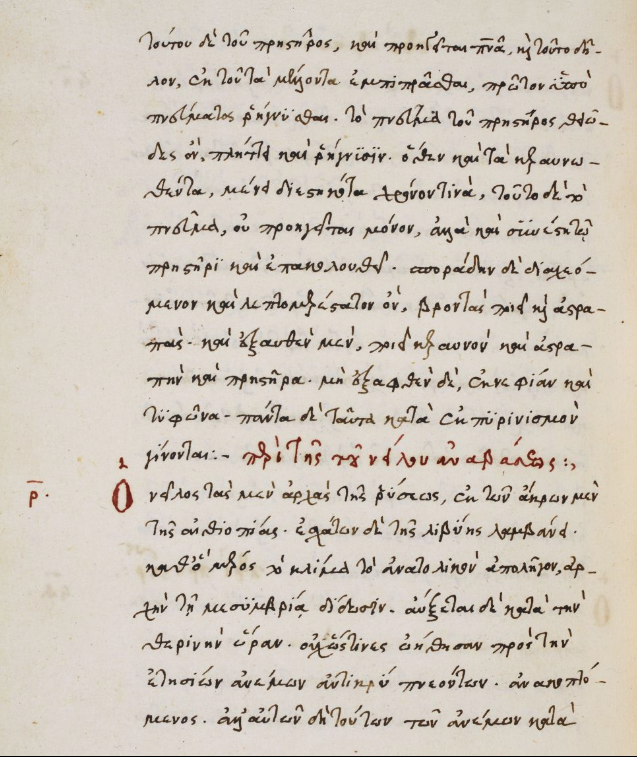 τούτου δὲ τοῦ πρηστῆρος, καὶ προηγεῖται πνᾶ, κὶ τοῦτο δῆ-
λον, ἐκ τοῦ τὰ μέλλοντα ἐμπίπρασθαι, πρῶτον ὑπὸ
πνεύματος ῥήγνυσθαι. τὸ πνεῦμα τοῦ πρηστῆρος θεῶ-
δες ὂν, πλήττει καὶ ῥήγνυσιν. ὅθεν καὶ τὰ κεραυνω-
θέντα, μένει διεστηκότα χρόνον τινὰ, τοῦτο δὲ τὸ
πνεῦμα, οὐ προηγεῖται μόνον, ἀλλὰ καὶ συνέστη τῶ
πρηστῆρι καὶ ἐπακολουθεῖ. σποράδην δὲ διαχεό-
μενον καὶ λεπτομερέστατον ὂν, βροντὰς ποιεῖ κὶ ἀστρα-
πάς. καὶ ἐξαφθὲν μὲν, ποιεῖ κεραυνὸν καὶ ἀστρα-
πὴν καὶ πρηστῆρα. μὴ ἐξαφθὲν δὲ, ἐκνεφίαν καὶ
τυφῶνα. πάντα δὲ ταῦτα κατὰ ἐκπυρινισμὸν
γίνονται:- περὶ τῆς τοῦ νείλου ἀναβάσεως:,
ρ. Ὁ νεῖλος τὰς μὲν ἀρχὰς τῆς ῥύσεως, ἐκ τῶν ἄκρων μὲν
τῆς αἰθιοπίας. ἐσχάτων δὲ τῆς λιβύης λαμβάνει.
καθ' ὃ μέρος τὸ κλίμα τὸ ἀνατολικὸν ἀπολῆγον, ἀρ-
χὴν τῆ μεσυμβρία δίδωσιν. αὔξεται δὲ κατὰ τὴν
θερινὴν ὥραν. οὐχ ὥς τινες ὠήθησαν πρὸς τὴν
ἐτησίων ἀνέμων ἀντικρὺ πνεόντων. ἀνακοπτό-
μενος. ἀλλ' αὐτῶν δὴ τούτων τῶν ἀνέμων κατὰ